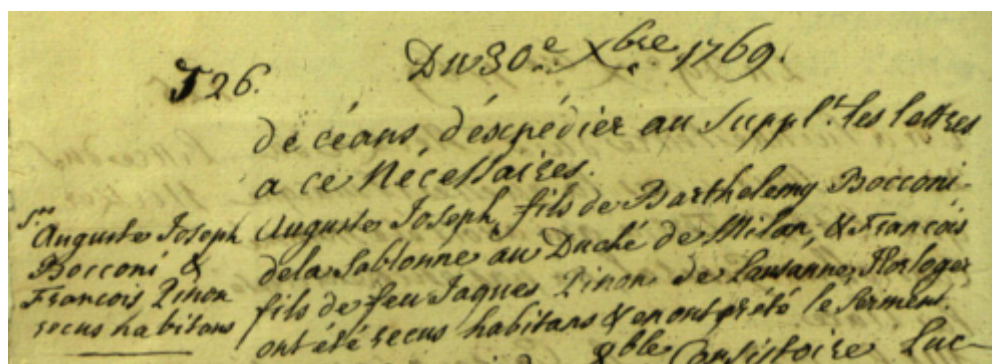 526.
Du 30.e Xbre 1769.
de céans, d'éxpédier au Suppl.t les lettres
a ce Nécessaires.
Srs Auguste Joseph
Bocconi &
François Pinon
recus habitans
Auguste Joseph, fils de Barthelemy Bocconi
de la Sablonne au Duché de Milan, & François
fils de feu Jaques Pinon de Lausanne, Horloger
ont été recus habitans & en ont prété le serment.
ble Consistoire Luc-